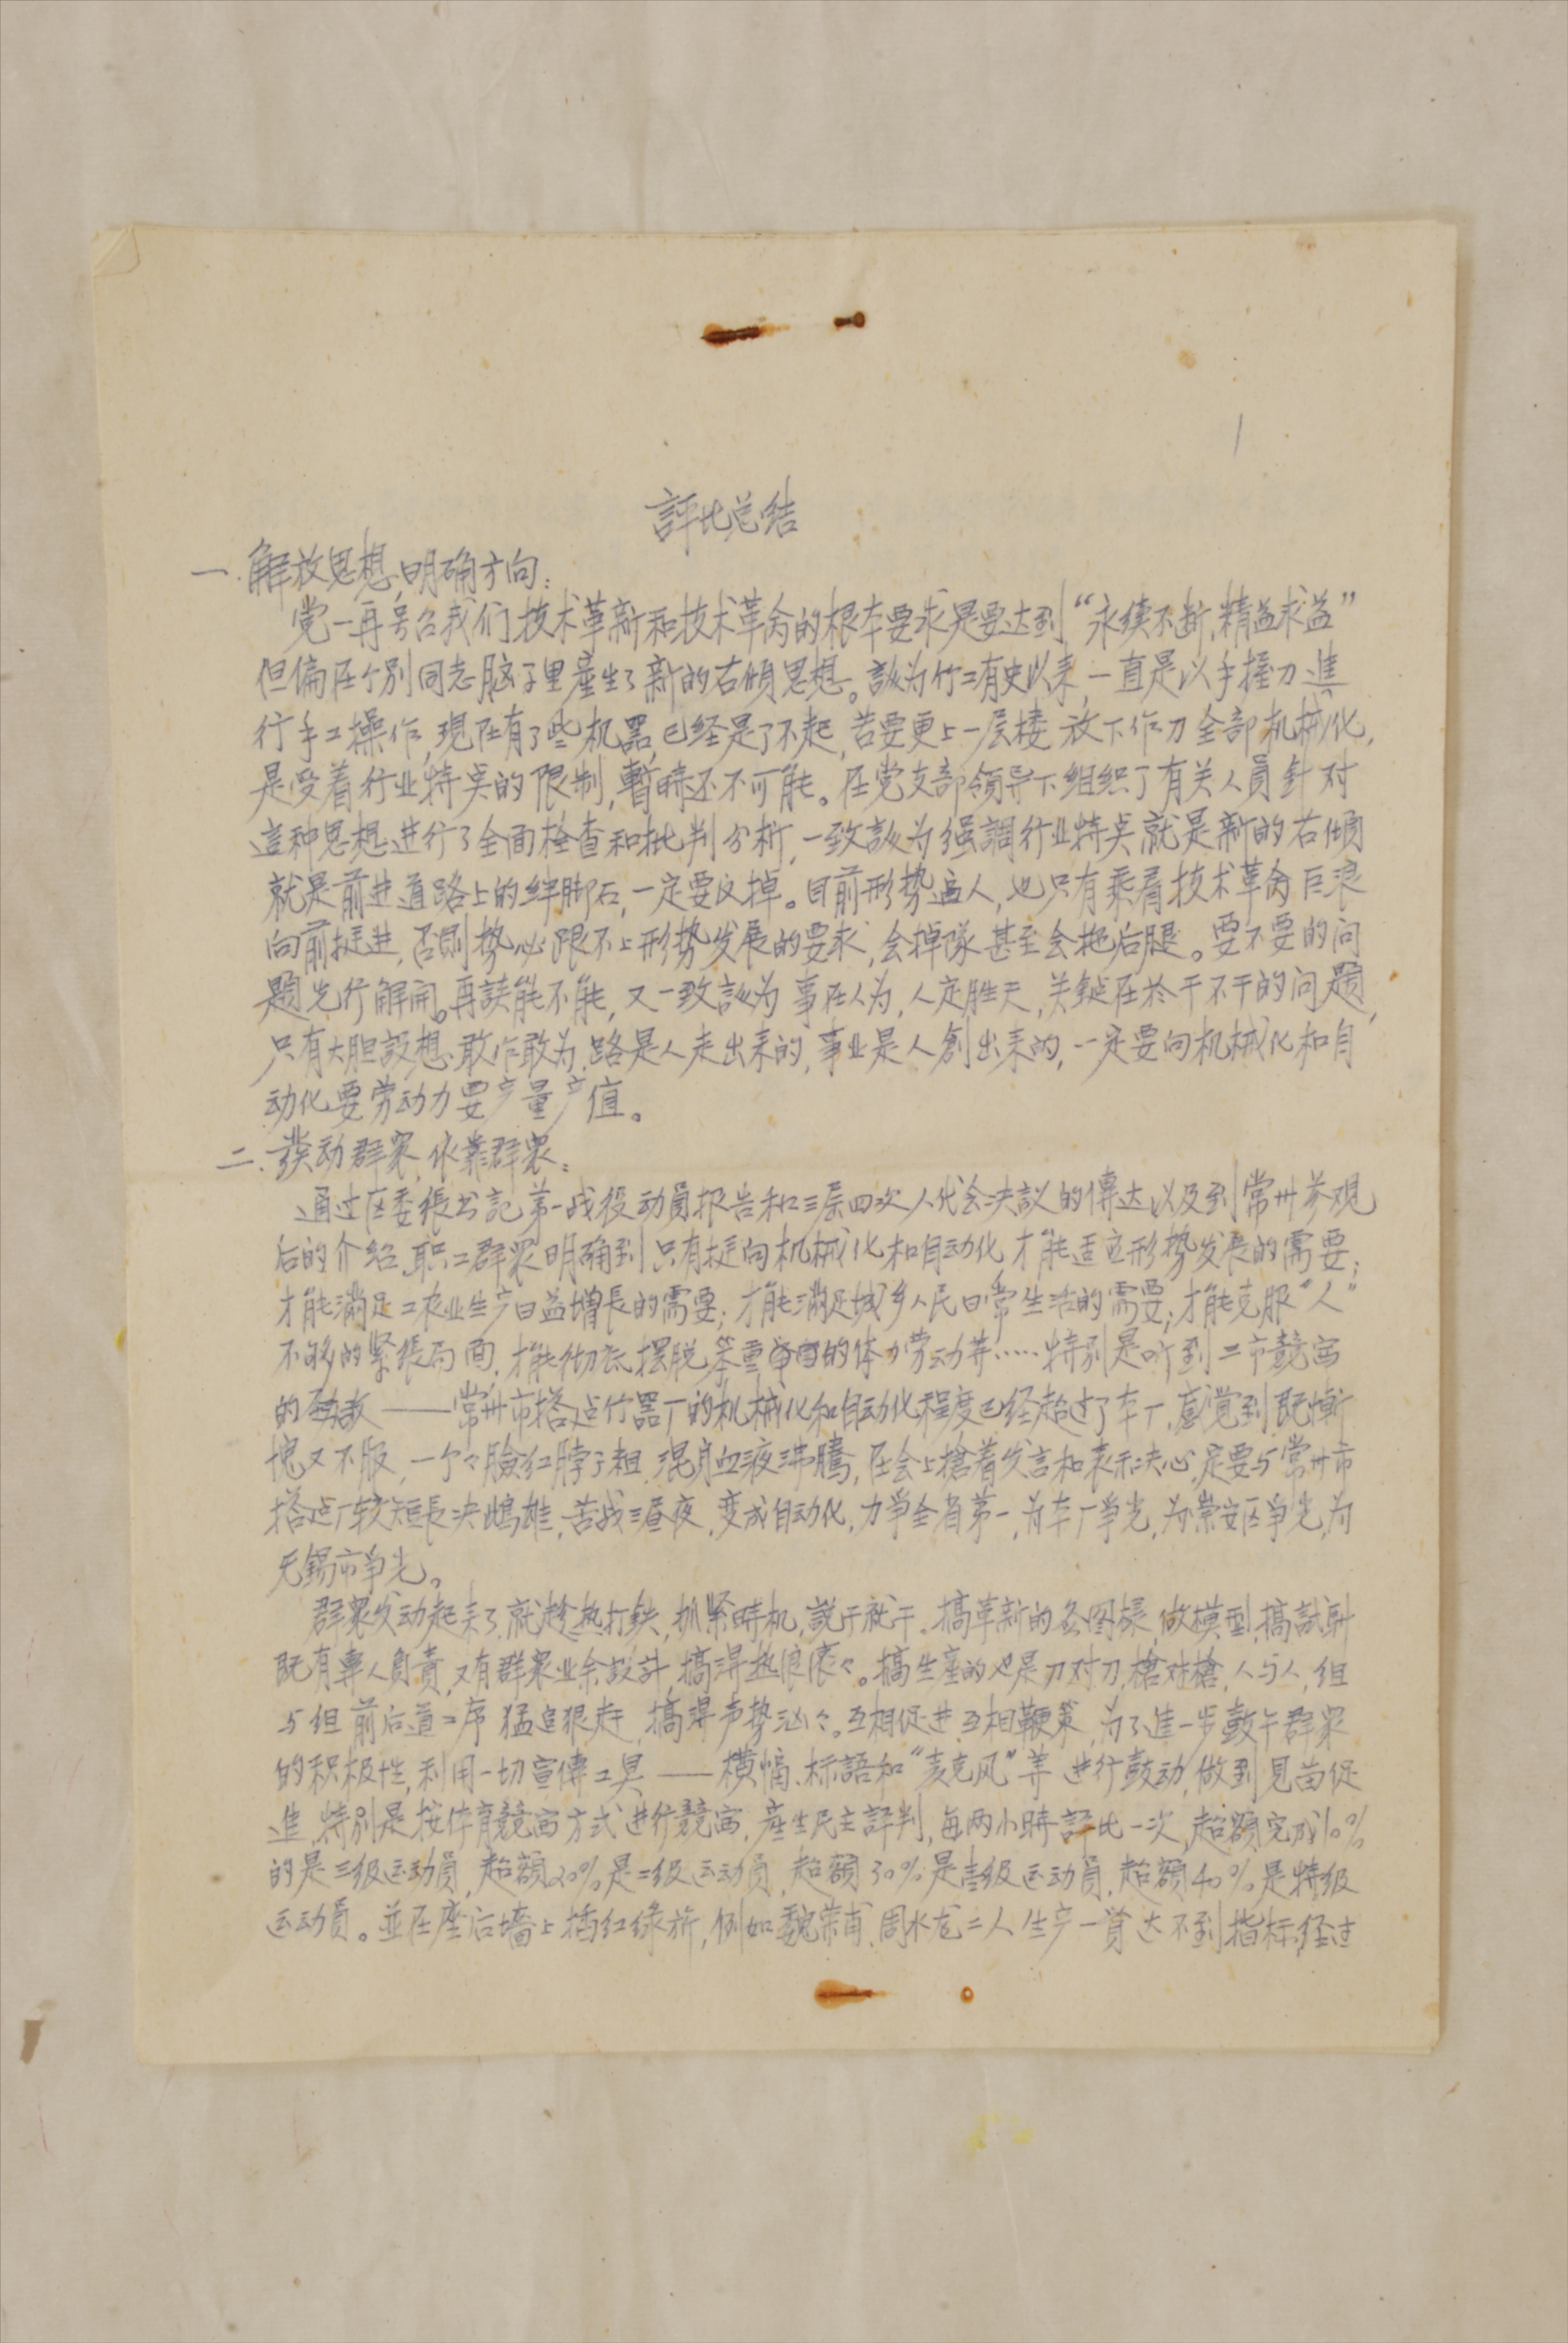 1
評比总结
一.解放思想,明确方向:
党一再号召我们技术革新和技术革命的根本要求是要达到“永续不断,精益求益”
但偏在个别同志脑子里產生了新的右倾思想。認为竹工有史以来,一直是以手握刀進
行手工操作,现在有了些机器,已经是了不起,若要更上一层楼放下作刀全部机械化,
是受着行业特点的限制,暫時还不可能。在党支部领导下组织了有关人員針对
這种思想进行了全面检查和批判分析,一致認为强調行业特点就是新的右傾
就是前进道路上的绊脚石,一定要
掉。目前形势逼人,也只有乘着技术革命巨浪
向前挺进,否則势必跟不上形势发展的要求,会掉隊甚至会拖后腿。要不要的问
題先行解開。再談能不能,又一致認为事在人为,人定胜天,关键在於干不干的问题,
只有大胆設想、敢作敢为,路是人走出来的,事业是人創出来的,一定要向机械化和自
动化要劳动力要产量产值。
二.發动群众,依靠群众:
通过区委張书記第一战役动員报告和三层四次人代会决議的傳达以及到常州参观
后的介绍,职工群众明确到只有挺向机械化和自动化才能适应形势发展的需要;
才能满足工农业生产日益增長的需要;才能满足城乡人民日常生活的需要;才能克服“人”
不够的紧張局面,才能彻底摆脱笨重的体力劳动等……特别是听到二市競賽
的劲敌——常州市搭连竹器厂的机械化和自动化程度已经超过了本厂,感觉到既惭
愧又不服,一个々臉红脖子粗,混身血液沸騰,在会上搶着发言和表示决心,定要与常州市
搭连厂较短長决鴟雄,苦战三昼夜,变成自动化,力争全省第一,为本厂争光,为崇安区争光,为
无锡市争光。
群众发动起来了,就趁热打鉄,抓紧時机,説干就干。搞革新的
图樣,做模型,搞試
既有專人負責,又有群众业余設計,搞得热浪滚々。搞生產的也是刀对刀,槍对槍,人与人,组
与组前后道工序猛追狠赶,搞得声势汹々。互相促进,互相鞭策,为了進一步鼓午群众
的积极性,利用一切宣傳工具——横幅、标語和“麦克风”等进行鼓动,做到見苗促
進,特别是按体育競賽方式进行競賽,產生民主評判,每两小時評比一次,超額完成10%
的是三级运动員,超額20%是二级运动員,超額30%是壹级运动員,超額40%是特级
运动員。並在座后墻上插红绿旂,例如魏荣甫、周水龙二人生产一貫达不到指标,经过